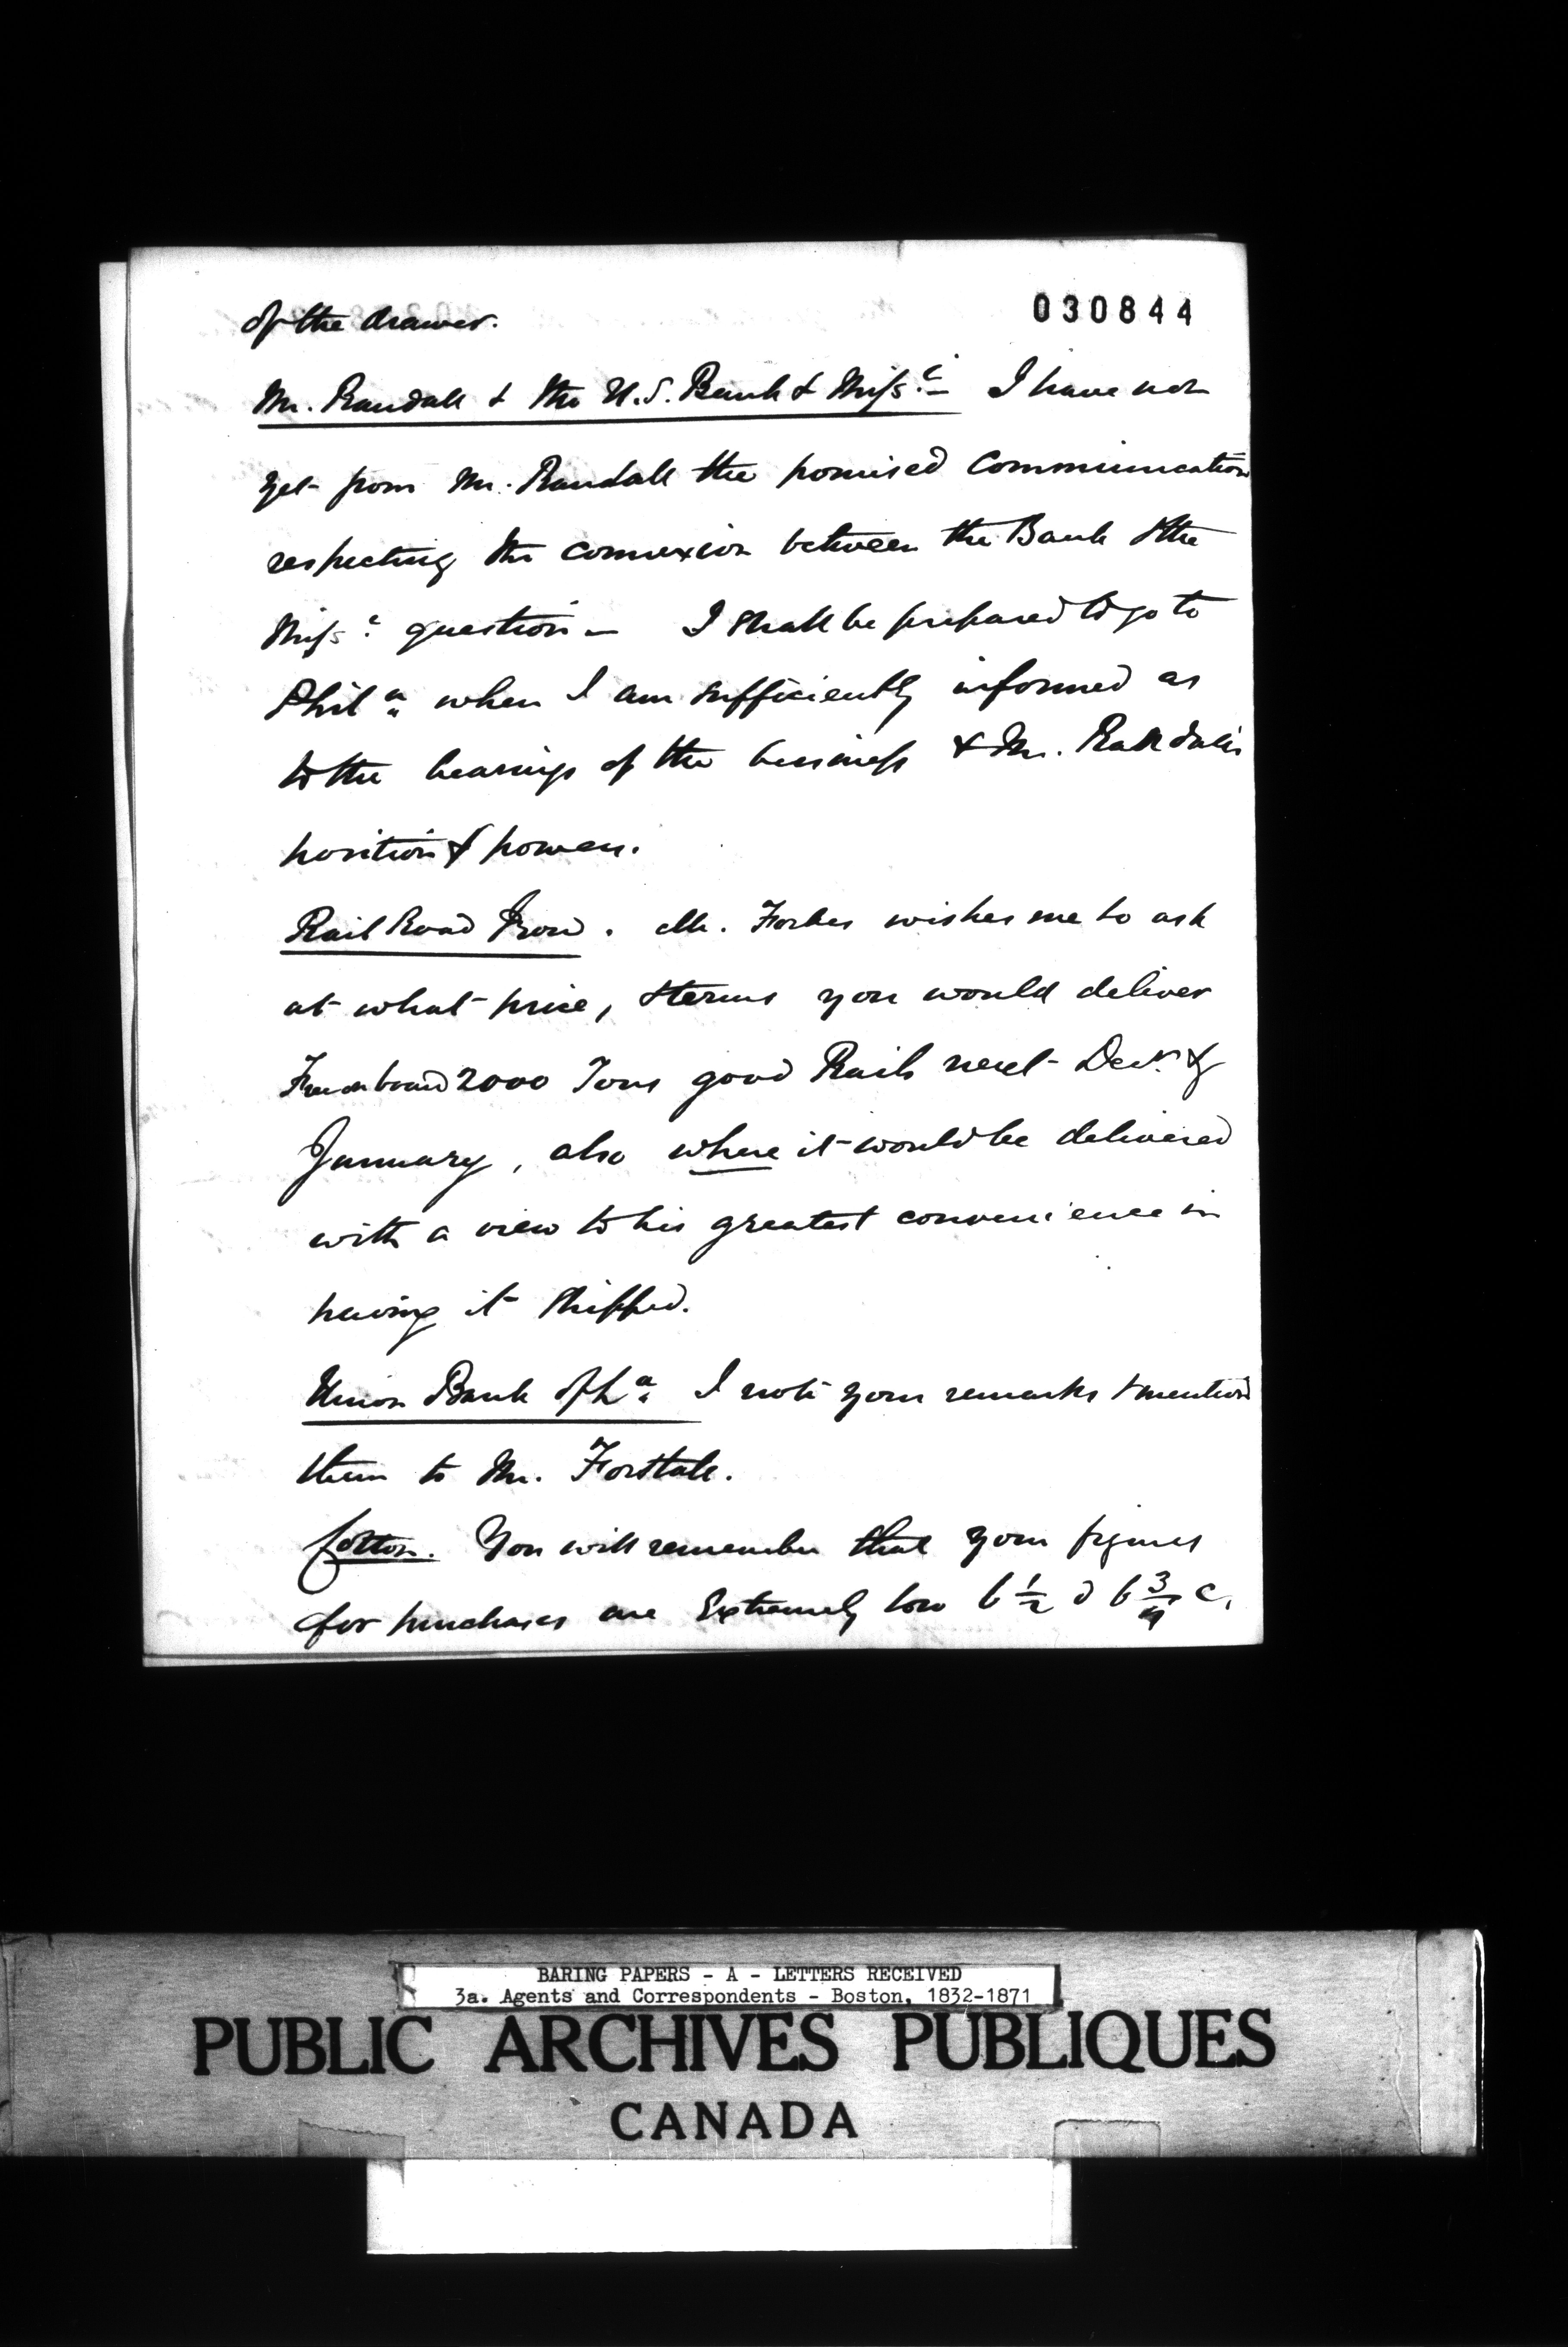 030844
of the drawer.
Mr. Randall & the U.S. Bank & Missi. I have not
yet from Mr. Randall the promised communication
respecting the connexion between the Bank & the
Missi question — I shall be prepared to go to
Phila. when I am sufficiently informed as
to the bearings of the business & Mr. Randall's
position & powers.
Rail Road Iron. Mr. Forbes wishes me to ask
at what price, & terms you would deliver
Free on board 2000 Tons good Rails next Decr. &
January, also where it would be delivered
with a view to his greatest convenience in
having it shipped.
Union Bank of La. I note your remarks & mention
them to Mr. Forstall.
Cotton. You will remember that your figures
for purchases are Extremely low 6 1/2 @ 6 3/4 c,
BARING PAPERS - A - LETTERS RECEIVED
3a. Agents and Correspondents - Boston, 1832-1871
PUBLIC ARCHIVES PUBLIQUES
CANADA